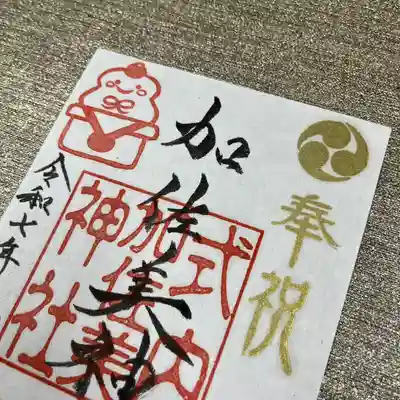 奉祝
加佐美神
式内
加佐美
神社
令和七年